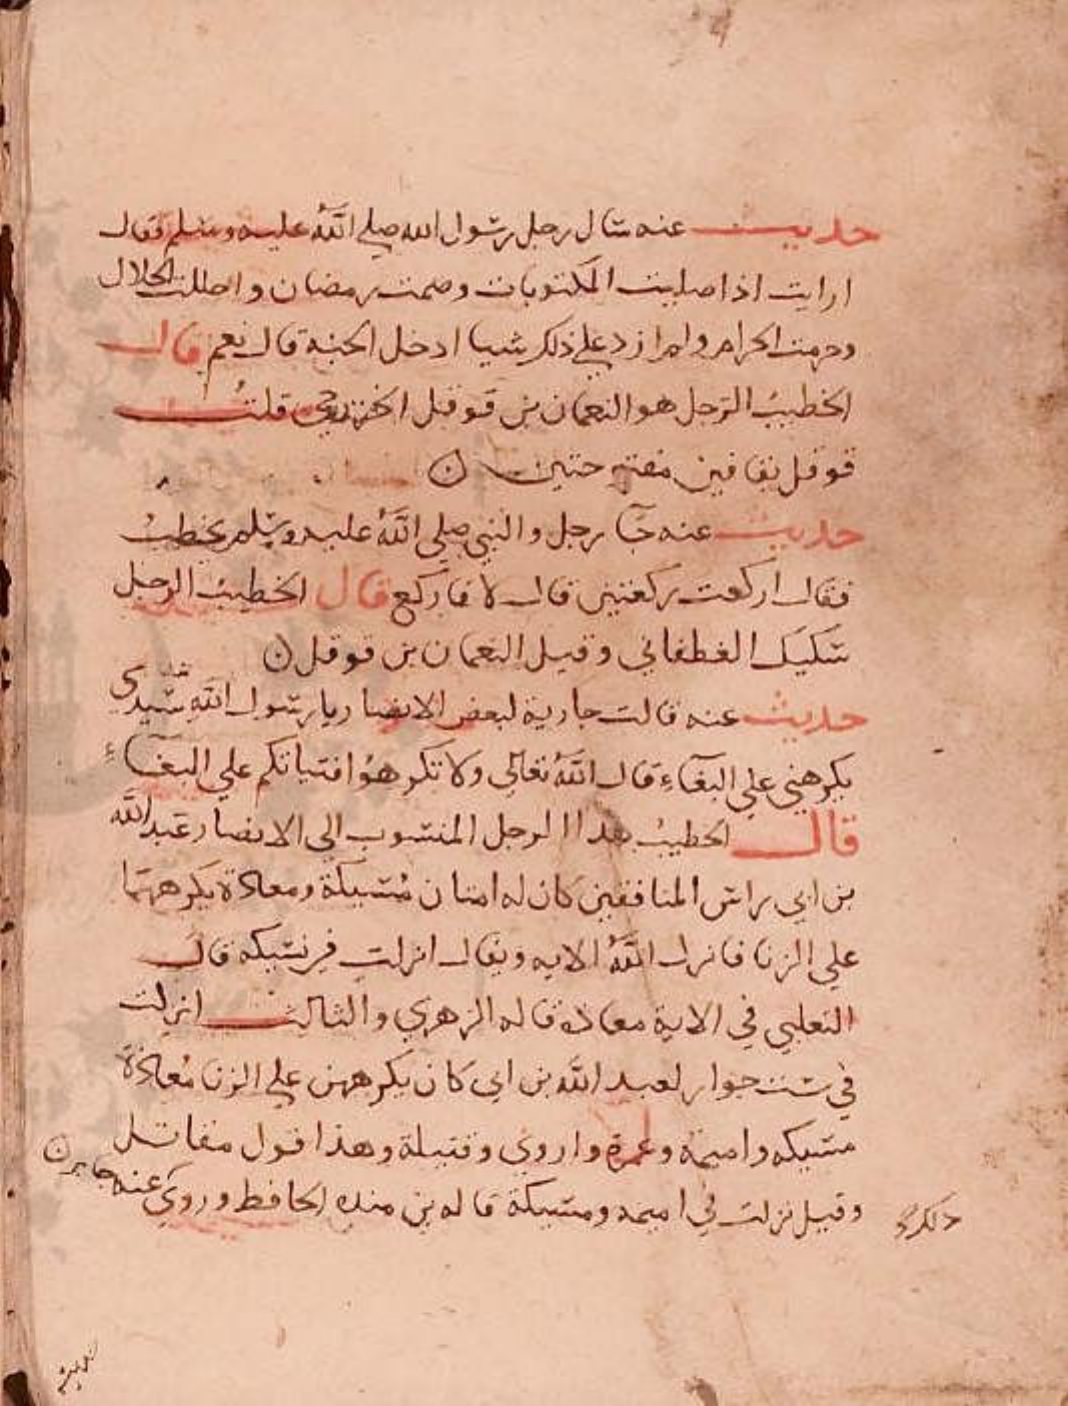 حديث عنه سال رجل رسول الله صلي الله عليه وسلم فقال
ارايت اذا صليت المكتوبات وصمت رمضان واحللت الحلال
وحرمت الحرام ولم ازد علي ذلك شيا ادخل الجنة قال نعم قال
الخطيب الرجل هو النعمان بن قوقل الخزرجي قلت
قوقل بقافين مفتوحتين
حديث عنه جآ رجل والنبي صلي الله عليه وسلم يخطب
فقال اركعت ركعتين قال لا فاركع قال الخطيب الرجل
سكيك الغطفاني وقيل النعمان بن قوقل
حديث عنه قالت جارية لبعض الانصار يا رسول الله سيدي
يكرهني علي البغاء قال الله تعالي ولا تكرهوا فتياتكم علي البغآء
قال الخطيب هذا الرجل المنسوب الي الانصار عبد الله
بن ابي راس المنافقين كان له امتان مسيكة ومعاذة يكرههما
علي الزنا فانزل الله الايه ويقال انزلت في مسيكه قال
الثعلبي في الاية معاذه قاله الزهري والثالث انزلت
في ست جوار لعبد الله بن ابي كان يكرههن علي الزنا معاذة
مسيكه واميمة وعمرة واروي وقتيلة وهذا قول مقاتل
وقيل نزلت في اميمه ومسيكة قاله بن منده الحافظ وروي عنه جابر